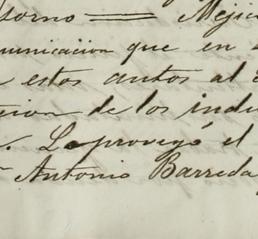 torno == Méjico
municacion que en s
estos autos al
cion de los indi
. Lo proveyó el
Antonio Barreda